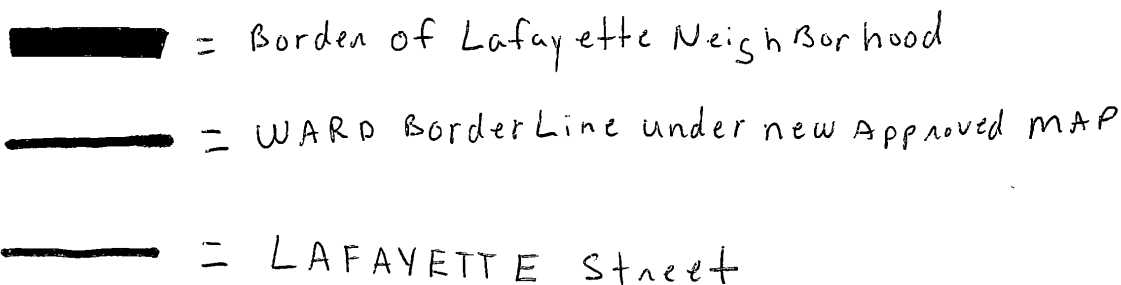 = Border of Lafayette NeighBorhood
= WARD BorderLine under new Approved MAP
= LAFAYETTE Street